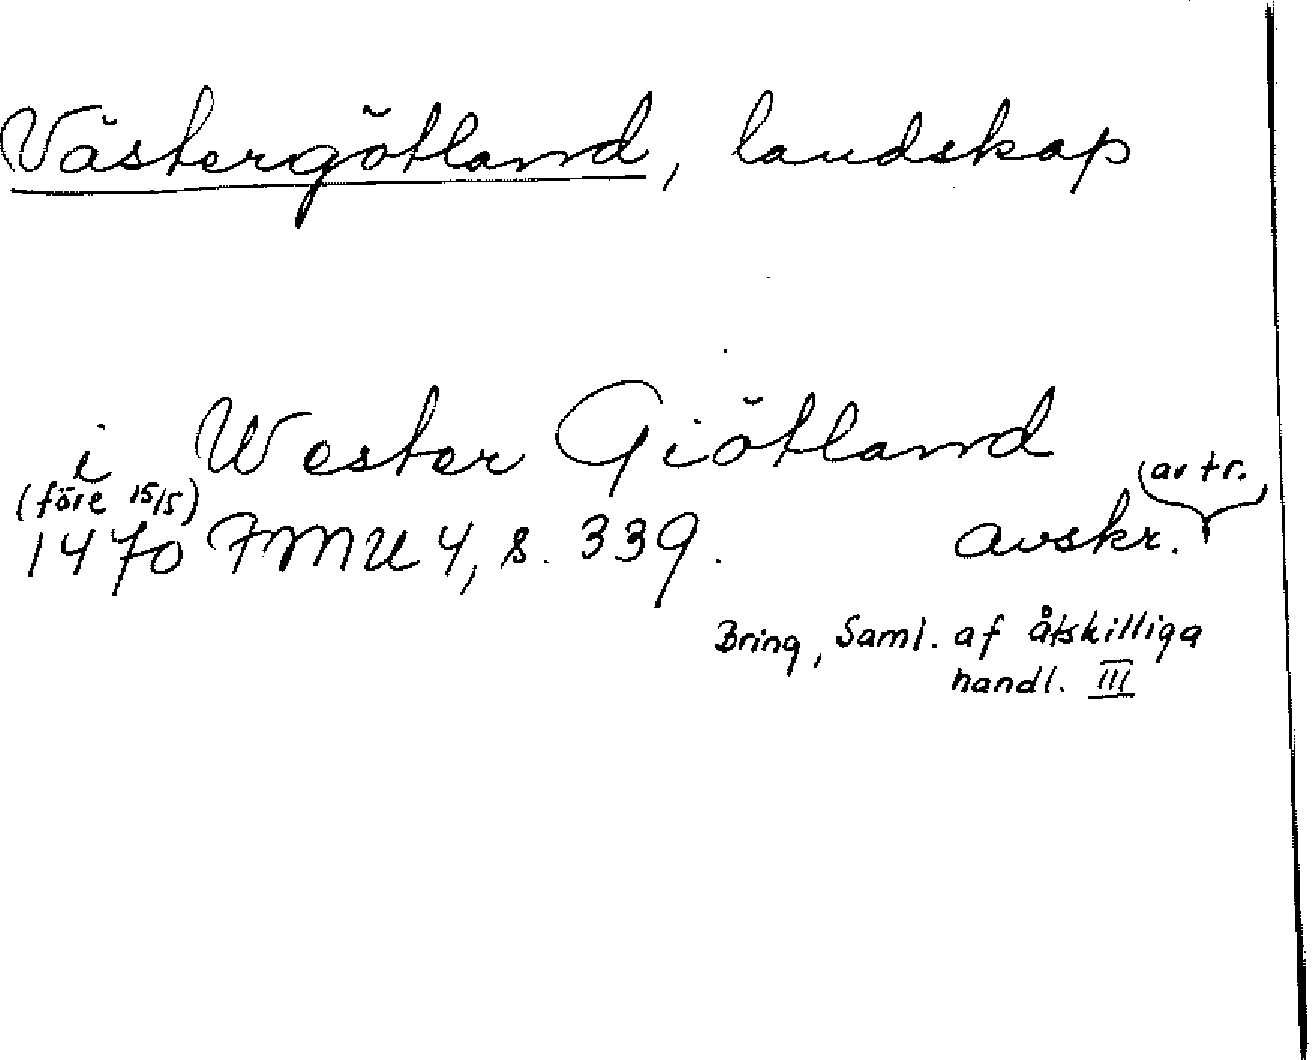 Västergötland, landskap
i Wester Giötland
(före 15/5) (av tr.)
1470 FMU 4, s. 339. avskr.
Bring, Saml. af åtskilliga
handl. III